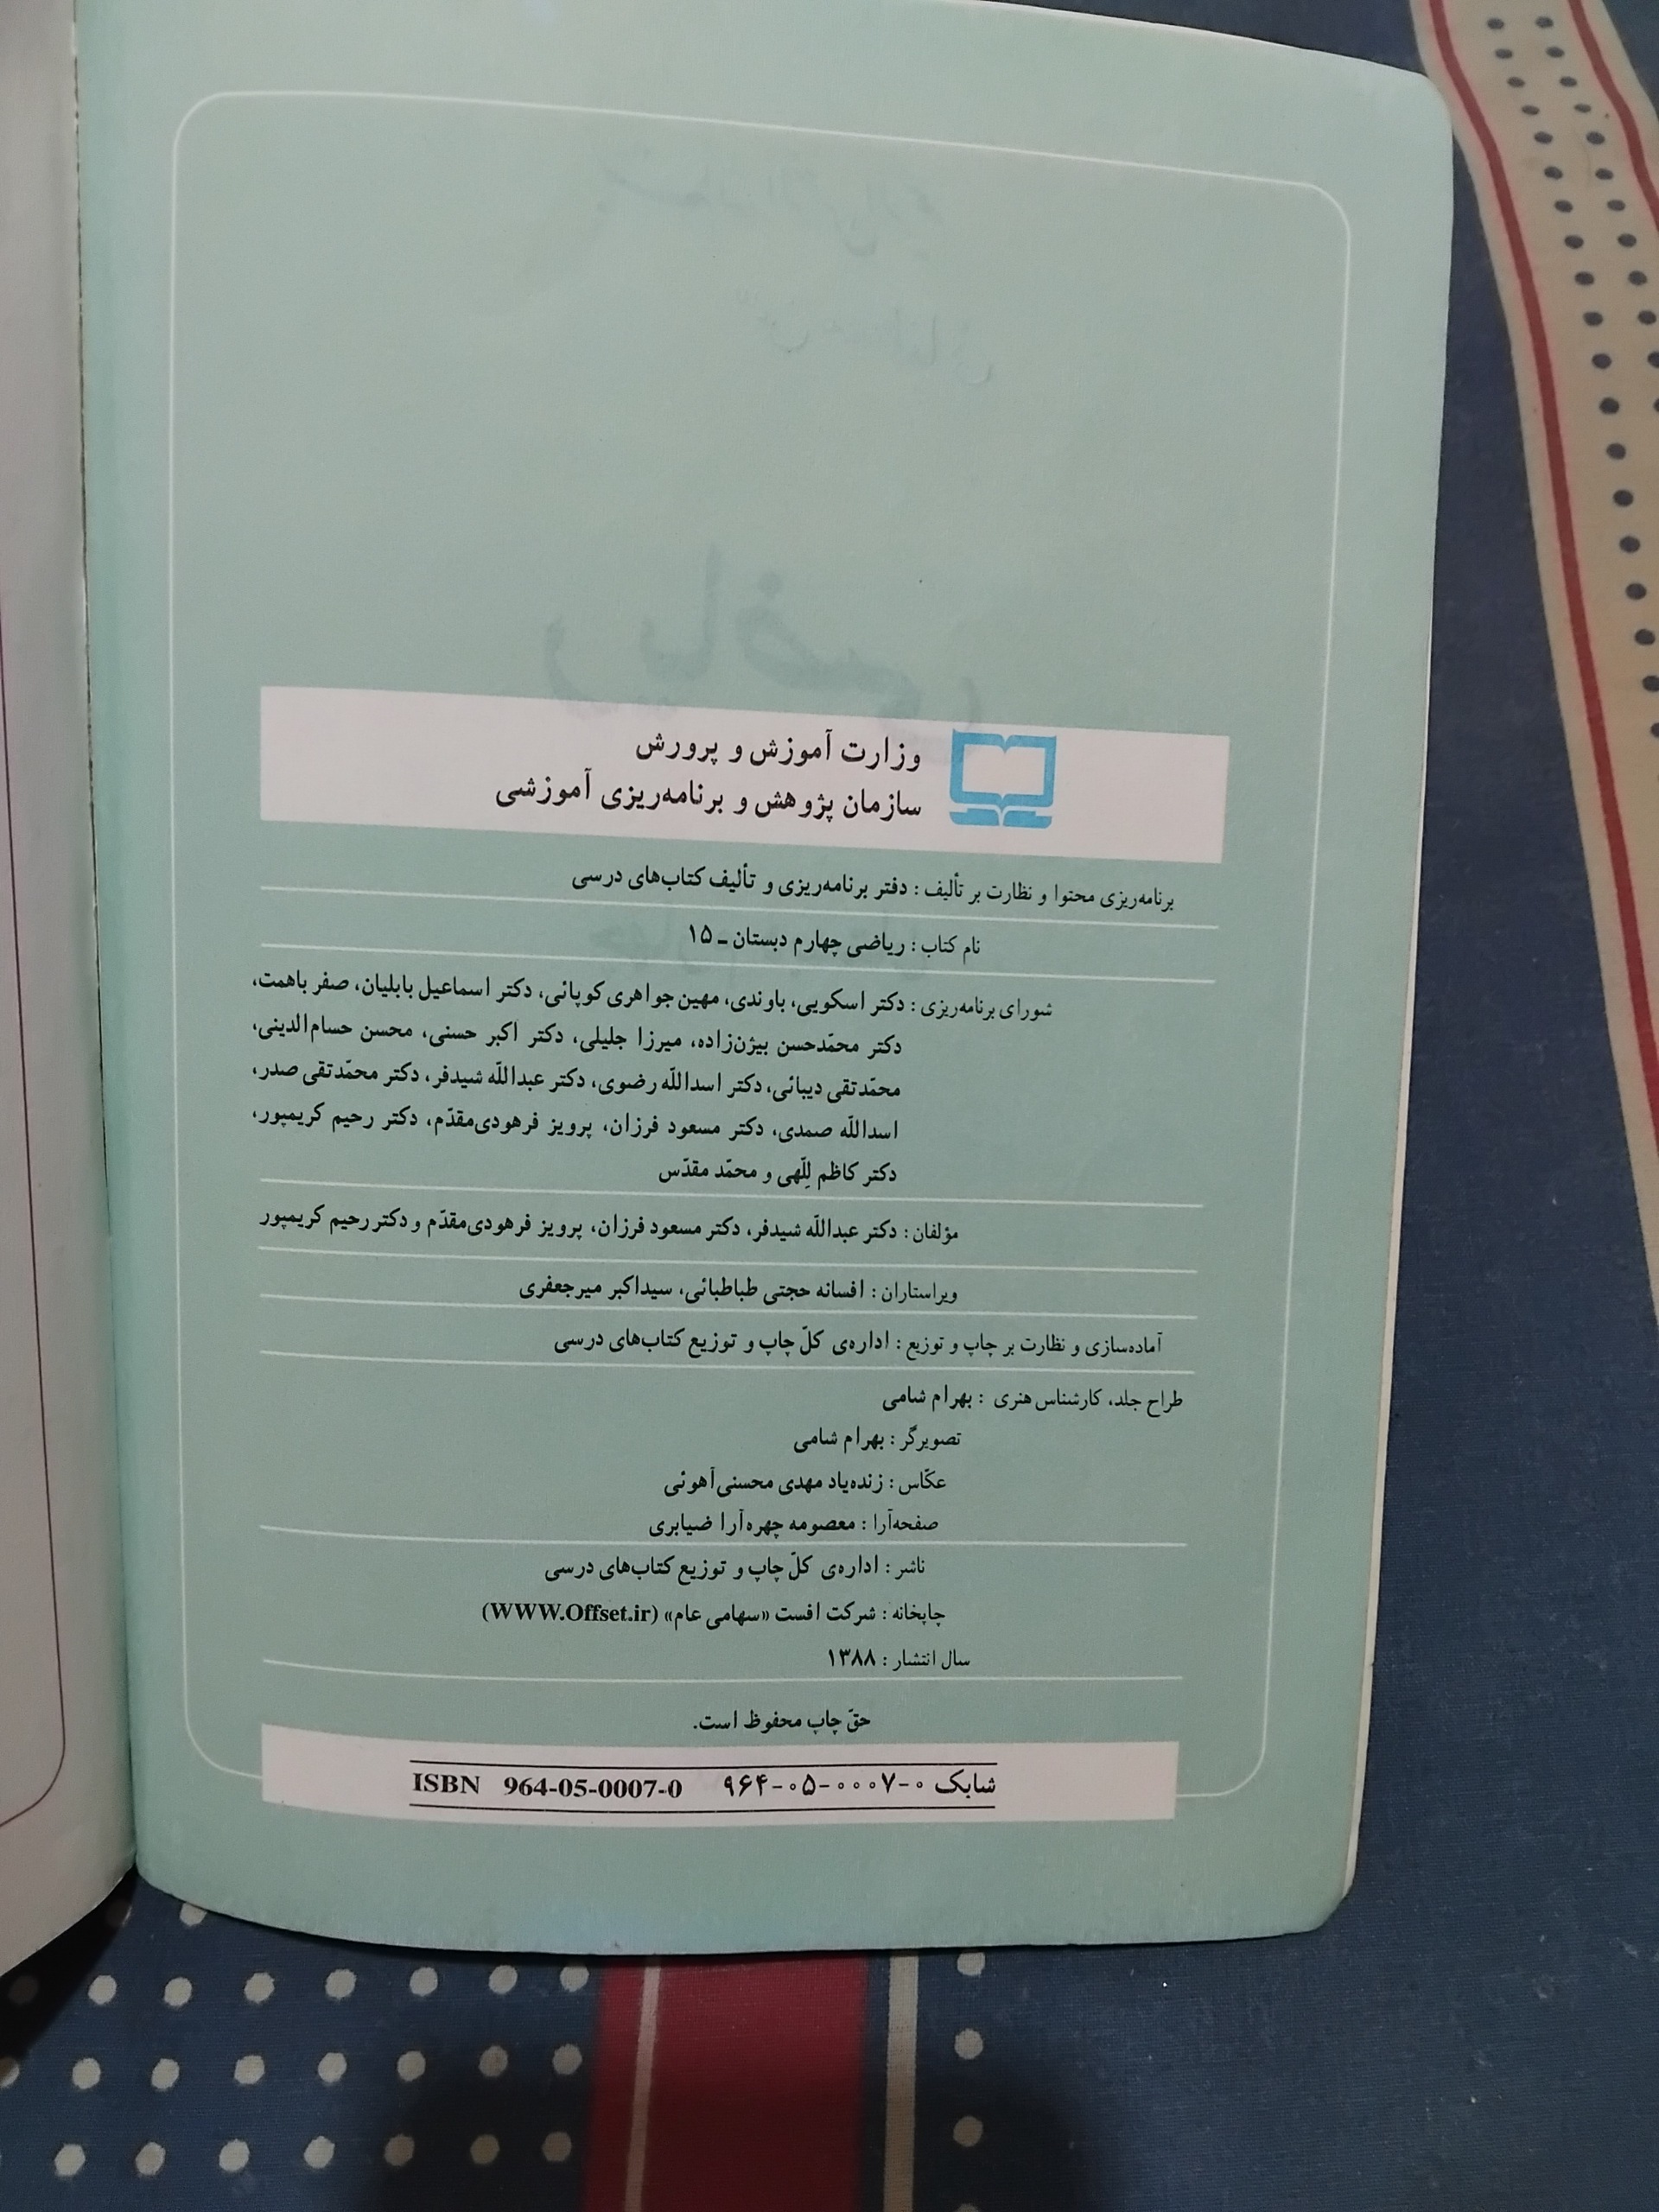 وزارت آموزش و پرورش
سازمان پژوهش و برنامه‌ریزی آموزشی
برنامه‌ریزی محتوا و نظارت بر تألیف : دفتر برنامه‌ریزی و تألیف کتاب‌های درسی
نام کتاب : ریاضی چهارم دبستان ـ ۱۵
شورای برنامه‌ریزی : دکتر اسکویی، باوندی، مهین جواهری کوپائی، دکتر اسماعیل بابلیان، صفر باهمت،
دکتر محمّدحسن بیژن‌زاده، میرزا جلیلی، دکتر اکبر حسنی، محسن حسام‌الدینی،
محمّدتقی دیبائی، دکتر اسداللّه رضوی، دکتر عبداللّه شیدفر، دکتر محمّدتقی صدر،
اسداللّه صمدی، دکتر مسعود فرزان، پرویز فرهودی‌مقدّم، دکتر رحیم کریمپور،
دکتر کاظم لِلّهی و محمّد مقدّس
مؤلفان : دکتر عبداللّه شیدفر، دکتر مسعود فرزان، پرویز فرهودی‌مقدّم و دکتر رحیم کریمپور
ویراستاران : افسانه حجتی طباطبائی، سیداکبر میرجعفری
آماده‌سازی و نظارت بر چاپ و توزیع : اداره‌ی کلّ چاپ و توزیع کتاب‌های درسی
طراح جلد، کارشناس هنری : بهرام شامی
تصویرگر : بهرام شامی
عکّاس : زنده‌یاد مهدی محسنی‌آهوئی
صفحه‌آرا : معصومه چهره‌آرا ضیابری
ناشر : اداره‌ی کلّ چاپ و توزیع کتاب‌های درسی
چاپخانه : شرکت افست «سهامی عام» (WWW.Offset.ir)
سال انتشار : ۱۳۸۸
حقّ چاپ محفوظ است.
شابک ۰-۰۰۰۷-۰۵-۹۶۴ ISBN 964-05-0007-0